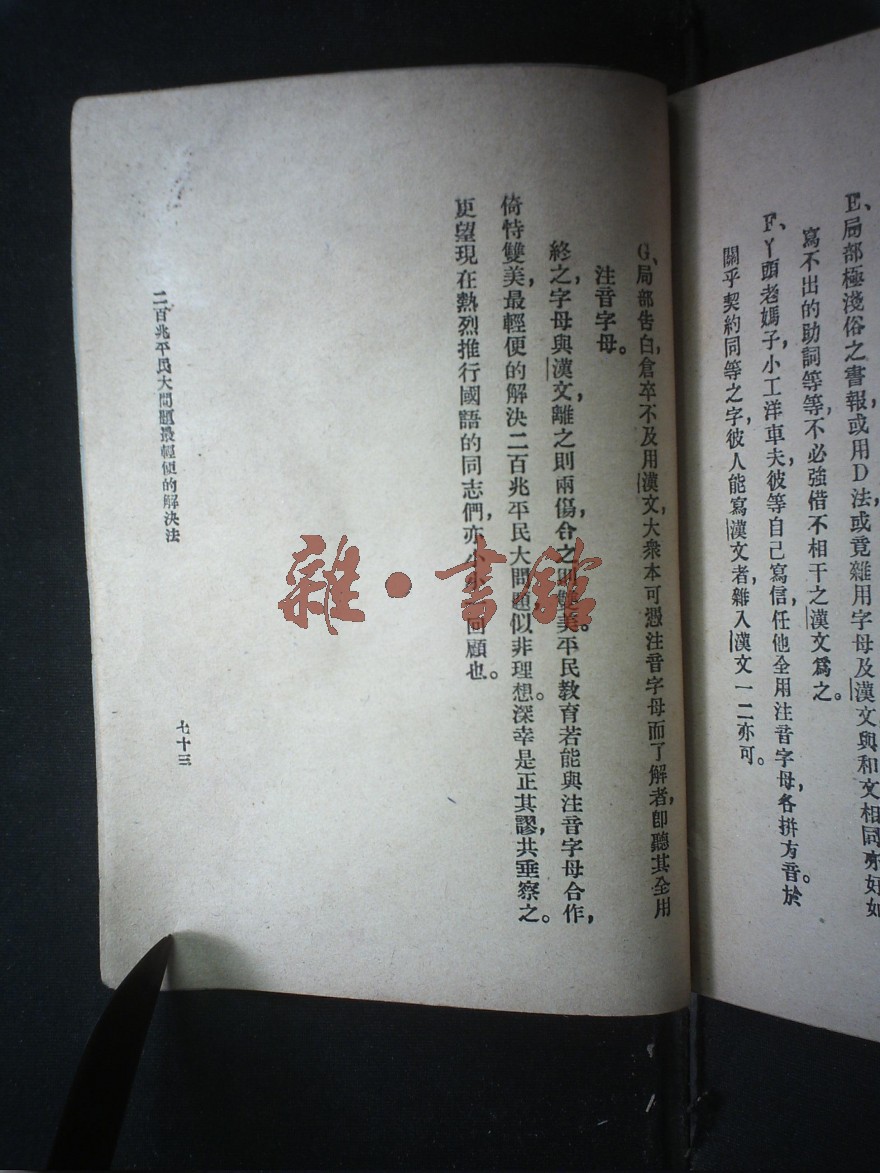 E、局部極淺俗之書報，或用D法，或竟雜用字母及漢文，與和文相同亦好。如
寫不出的助詞等等，不必強借不相干之漢文爲之。
F、丫頭老媽子小工洋車夫，彼等自己寫信，任他全用注音字母，各拼方音。於
關乎契約同等之字，彼人能寫漢文者，雜入漢文一二亦可。
G、局部告白，倉卒不及用漢文，大衆本可憑注音字母而了解者，卽聽其全用
注音字母。
終之，字母與漢文，離之則兩傷，合之則雙美。平民教育若能與注音字母合作，
倚恃雙美，最輕便的解決二百兆平民大問題，似非理想。深幸是正其謬，共垂察之。
更望現在熱烈推行國語的同志們，亦小小回顧也。
二百兆平民大問題最輕便的解決法
七十三
雜·書館